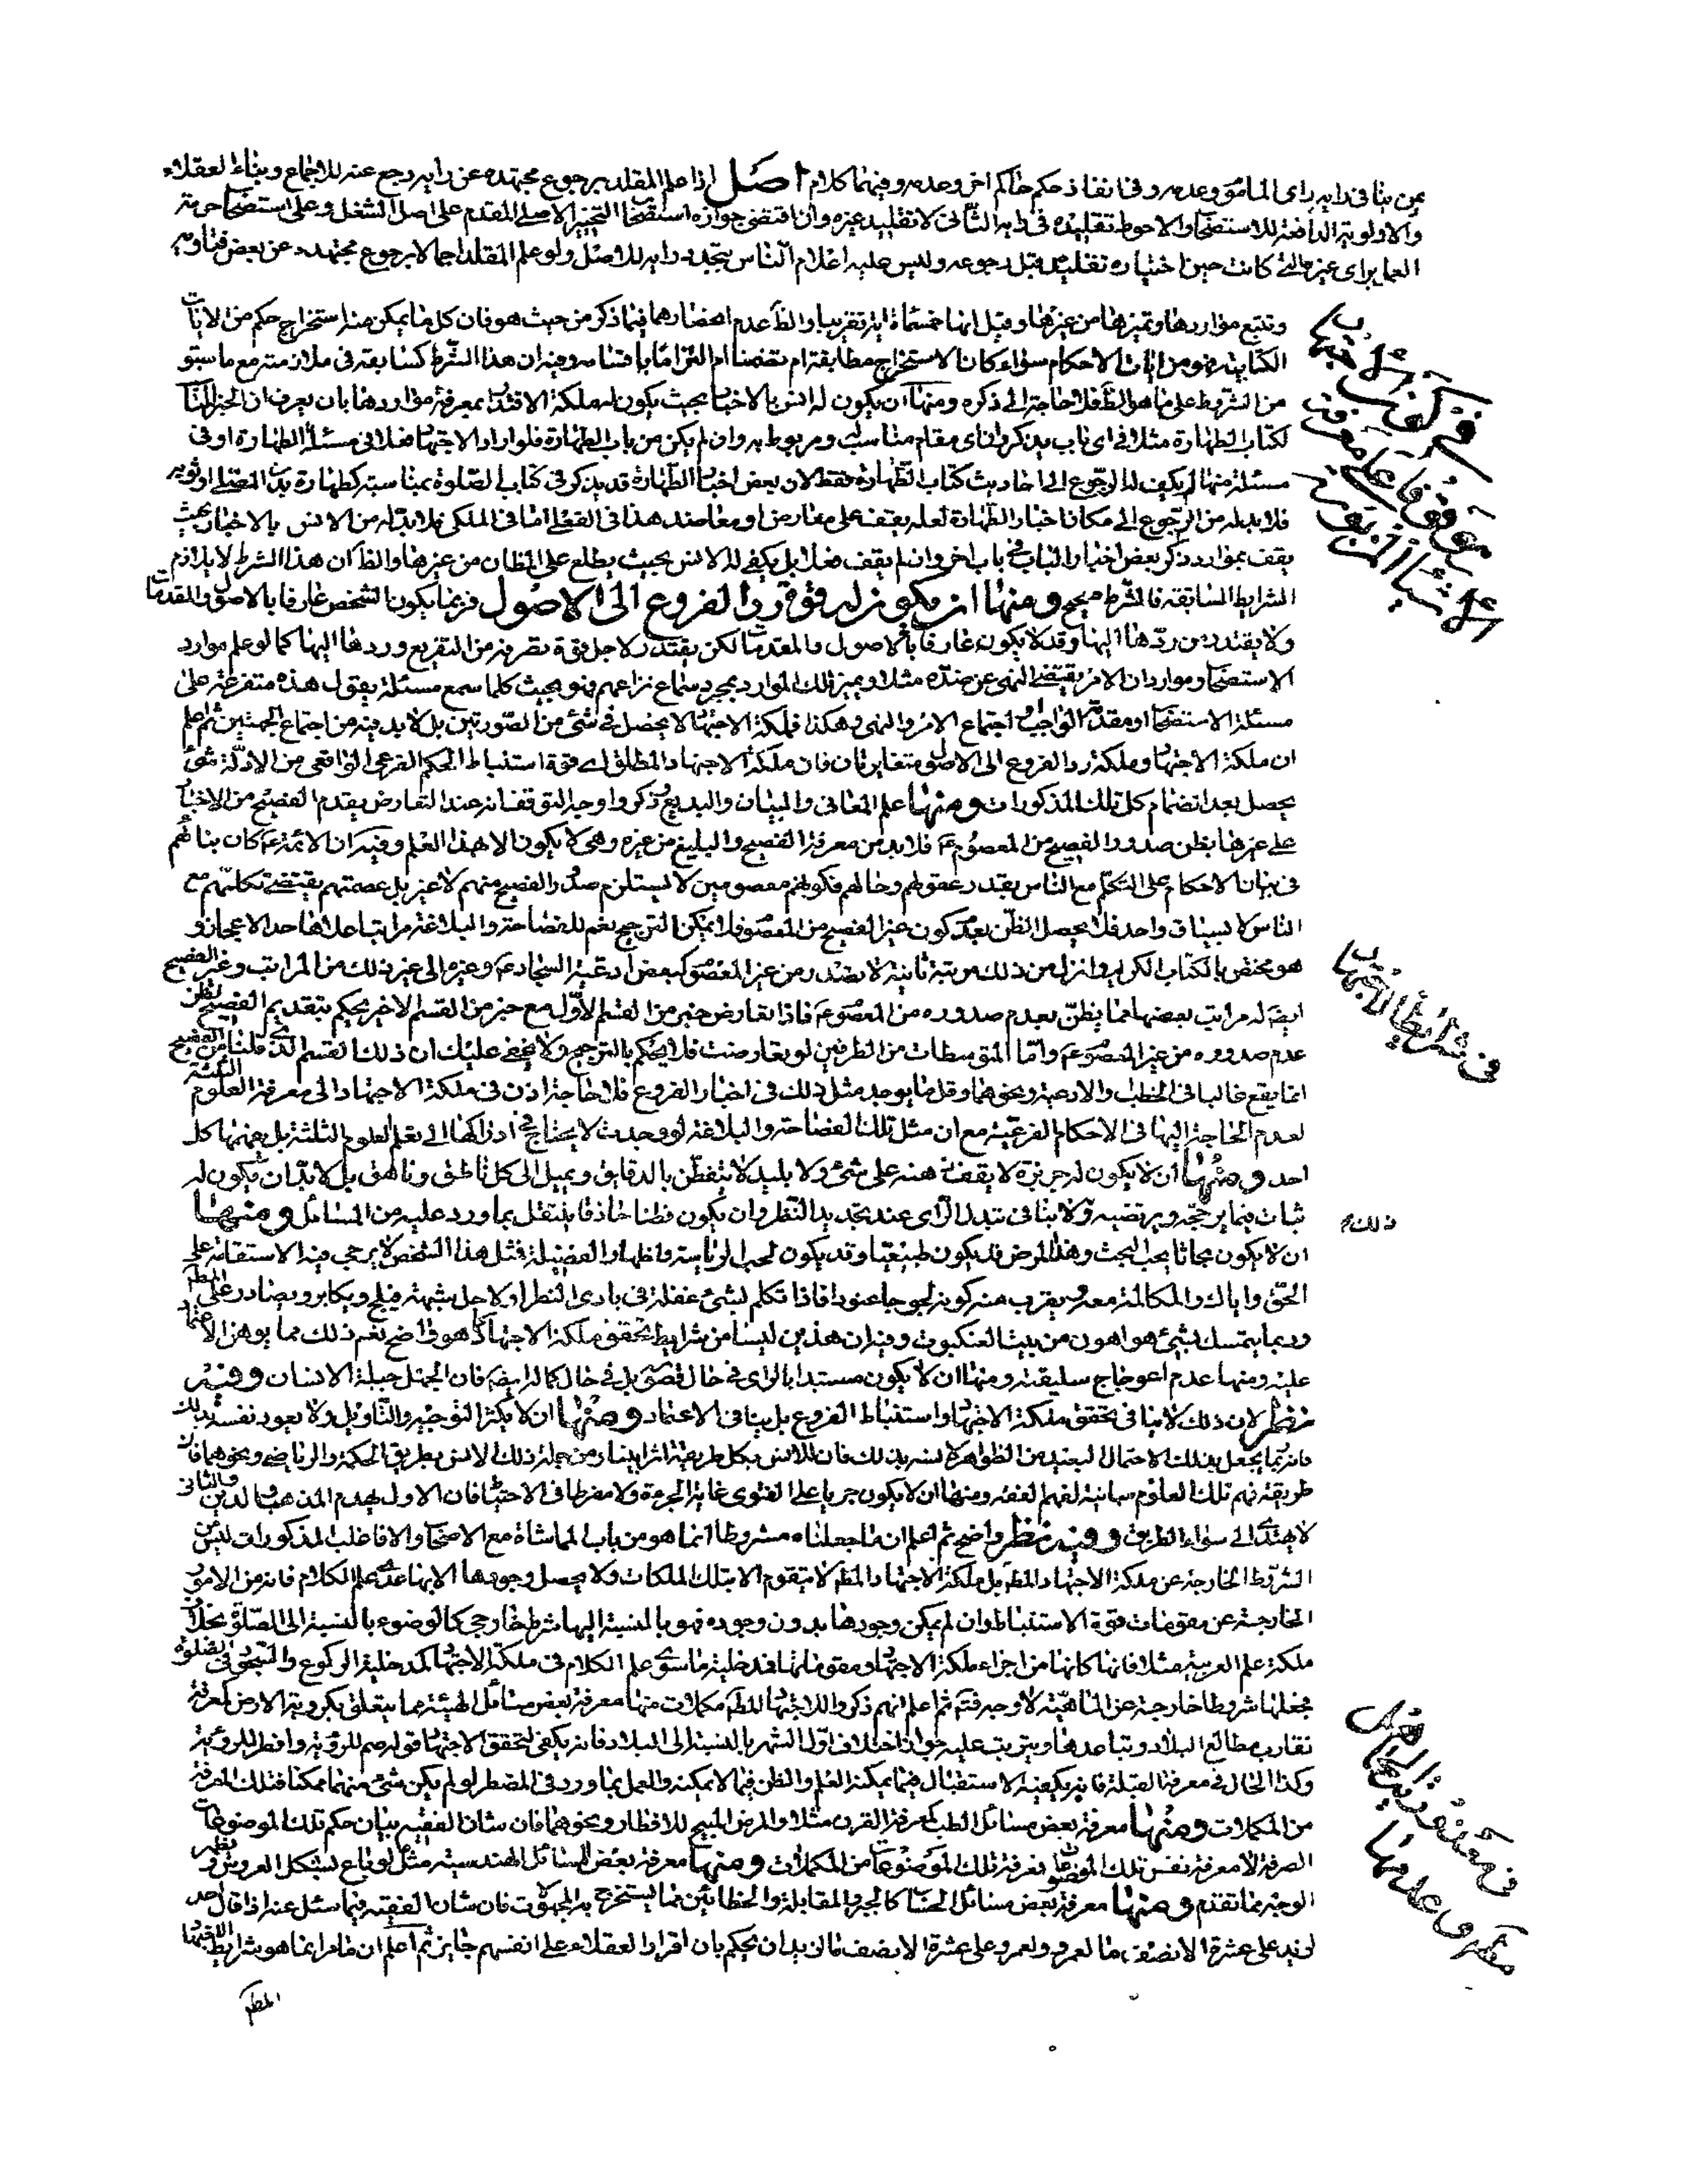 بمن ينافى رايه راى الماموم وعدمه وفى انفاذ حكم حاكم اخر وعدمه وفيهما كلام اصل اذا علم المقلد برجوع مجتهده عن رايه رجع عنه للاجماع وبناء العقلاء
والاولوية الدافعة للاستصحاب والاحوط تقليده فى رايه الثانى لا تقليد غيره وان اقتضى جوازه استصحاب التخيير الاصلى المقدم على اصل الشغل وعلى استصحاب حرمة
العمل براى غير كانت حين اختياره تقليده قبل رجوعه وليس عليه اعلام الناس بتجدد رايه للاصل ولو علم المقلد اجمالا برجوع مجتهده عن بعض فتاويه
وتتبع مواردها وتميزها من غيرها وقيل انها خمسمائة اية تقريبا والظ عدم انحصارها فيما ذكر من حيث هو فان كل ما يمكن منه استخراج حكم من الايات
الكتابية فهو من ايات الاحكام سواء كان الاستخراج مطابقة ام تضمنا ام التزاما باقسامه وفيه ان هذا الشرط كسابقه فى ملازمته مع ما سبق
من الشروط على ما هو الظ فلا حاجة الى ذكره ومنها ان يكون له انس بالاخبار بحيث يكون له ملكة الاقتدار بمعرفة مواردها بان يعرف ان الخبر المناسب
لكتاب الطهارة مثلا فى اى باب يذكر وان اى مقام مناسب له ومربوط به وان لم يكن من باب الطهارة فلو اراد الاجتهاد فعلا فى مسئلة الطهارة او فى
مسئلة منها لم يكف له الرجوع الى احاديث كتاب الطهارة فقط لان بعض اخبار الطهارة قد يذكر فى كتاب الصلوة بمناسبة كطهارة بدن المصلى او ثوبه
فلا بد له من الرجوع الى مكان اخبار الطهارة لعله يقف على معارض او معاضد هذا فى الفعلى اما فى الملكى فلا بد له من الانس بالاخبار بحيث
يقف بموارد ذكر بعض اخبار الباب فى باب اخر وان لم يقف فعلا بل يكفى له الانس بحيث يطلع على المظان من غيرها والظ ان هذا الشرط لا يلازم
الشرايط السابقة فالشرط صحيح ومنها ان يكون له قوة رد الفروع الى الاصول فربما يكون الشخص عارفا بالاصول والمقدمات
ولا يقتدر من ردها اليها وقد لا يكون عارفا بالاصول والمقدمات لكن يقتدر لاجل قوة تصرفه من التفريع وردها اليها كما لو علم موارد
الاستصحاب وموارد ان الامر يقتضى النهى عن ضده مثلا ويميز تلك الموارد بمجرد سماع نزاعهم فهو بحيث كلما سمع مسئلة يقول هذه متفرعة على
مسئلة الاستصحاب او مقدمة الواجب او اجتماع الامر والنهى وهكذا فملكة الاجتهاد لا يحصل فى شئ من الصورتين بل لا بد فيه من اجتماع الجهتين ثم اعلم
ان ملكة الاجتهاد وملكة رد الفروع الى الاصول متغايرتان فان ملكة الاجتهاد المطلق اى قوة استنباط الحكم الفرعى الواقعى من الادلة شئ
يحصل بعد انضمام كل تلك المذكورات ومنها علم المعانى والبيان والبديع ذكروا وجه التوقف انه عند التعارض يقدم الفصيح من الاخبار
على غيرها بظن صدور الفصيح من المعصوم ع فلا بد من معرفة الفصيح والبليغ من غيره وهى لا يكون الا بهذا العلم وفيه ان الائمة ع كان بنائهم
فى بيان الاحكام على التكلم مع الناس بقدر عقولهم وحالهم فكونهم معصومين لا يستلزم صدور الفصيح منهم لا غير بل عصمتهم يقتضى تكلمهم مع
الناس لا بسياق واحد فلا يحصل الظن بعدم كون غير الفصيح من المعصوم فلا يمكن الترجيح نعم للفصاحة والبلاغة مراتب اعلاها حد الاعجاز و
هو مختص بالكتاب الكريم وانزل من ذلك مرتبة ثانية لا يصدر من غير المعصوم كبعض ادعية السجاد ع وغيره الى غير ذلك من المراتب وغير الفصيح
ايضا له مراتب بعضها مما يظن بعدم صدوره من المعصوم ع فاذا تعارض خبر من القسم الاول مع خبر من القسم الاخير يحكم بتقديم الفصيح لظن
عدم صدوره من غير المعصوم ع واما المتوسطات من الطرفين لو تعارضت فلا يحكم بالترجيح ولا يخفى عليك ان ذلك القسم الذى قلنا من الفصيح
انما يقع غالبا فى الخطب والادعية ونحوهما وقل ما يوجد مثل ذلك فى اخبار الفروع فلا حاجة اذن فى ملكة الاجتهاد الى معرفة العلوم الثلثة
لعدم الحاجة اليها فى الاحكام الفرعية مع ان مثل تلك الفصاحة والبلاغة لو وجدت لا يحتاج فى ادراكها الى تعلم العلوم الثلثة بل يفهمها كل
احد ومنها ان لا يكون له جربزة لا يقف ذهنه على شئ ولا بليد لا يتفطن بالدقايق ويميل الى كل ناطق وناهق بل لا بد ان يكون له
ثبات فيما يرجحه ويرتضيه ولا ينافى تبدل الراى عند تجديد النظر وان يكون فطنا حاذقا ينتقل بما ورد عليه من المسائل ومنها
ان لا يكون بحاثا يحب البحث وهذا المرض قد يكون طبيعيا وقد يكون لحب الرياسة واظهار الفضيلة فمثل هذا الشخص لا يرجى فيه الاستقامة على
الحق واياك والمكالمة معه ويقرب منه كونه لجوجا عنودا فاذا تكلم بشئ غفلة فى بادى النظر او لاجل شبهة فيلج ويكابر ويصادر على المط
وربما يتمسك بشئ هو اهون من بيت العنكبوت وفيه ان هذين ليسا من شرايط تحقق ملكة الاجتهاد كما هو واضح نعم ذلك مما يوهن الاعتماد
عليه ومنها عدم اعوجاج سليقته ومنها ان لا يكون مستبدا بالراى فى حال قصوره بل فى حال كماله ايضا فان الجهل جبلة الانسان وفيه
نظر لان ذلك لا ينافى تحقق ملكة الاجتهاد واستنباط الفروع بل ينافى الاعتماد ومنها ان لا يكثر التوجيه والتاويل ولا يعود نفسه بذلك
فانه ربما يجعل بذلك الاحتمال البعيد من الظواهر لانسه بذلك فان للانس بكل طريقة اثرا بينا ومن جملة ذلك الانس بطريق الحكمة والرياضى ونحوهما فان
طريقة فهم تلك العلوم مباينة لفهم الفقه ومنها ان لا يكون جريا على الفتوى غاية الجرئة ولا مفرطا فى الاحتياط فان الاول يهدم المذهب والدين والثانى
لا يهتدى الى سواء الطريق وفيه نظر واضح ثم اعلم ان ما جعلناه مشروطا انما هو من باب المماشاة مع الاصحاب والا فاغلب المذكورات ليس
الشروط الخارجة عن ملكة الاجتهاد المط بل ملكة الاجتهاد المط لا يتقوم الا بتلك الملكات ولا يحصل وجودها الا بها عدى علم الكلام فانه من الامور
الخارجة عن مقومات قوة الاستنباط وان لم يمكن وجودها بدون وجوده فهو بالنسبة اليها شرط خارجى كالوضوء بالنسبة الى الصلوة بخلاف
ملكة علم العربية مثلا فانها كانها من اجزاء ملكة الاجتهاد ومقوماتها فمدخلية ما سوى علم الكلام فى ملكة الاجتهاد كمدخلية الركوع والسجود فى الصلوة
فجعلها شروطا خارجة عن الماهية لا وجه فتم ثم اعلم انهم ذكروا للاجتهاد المط مكملات منها معرفة بعض مسائل الهيئة مما يتعلق بكروية الارض لمعرفة
تقارب مطالع البلاد وتباعدها ويترتب عليه جواز اختلاف اول الشهر بالنسبة الى البلاد فانه يكفى لتحقق الاجتهاد قوله صم للرؤية وافطر للرؤية
وكذا الحال فى معرفة القبلة فانه يكفيه الاستقبال فيما يمكنه العلم والظن فيما لا يمكنه والعمل بما ورد فى المضطر لو لم يكن شئ منهما ممكنا فتلك المعرفة
من المكملات ومنها معرفة بعض مسائل الطب كمعرفة القرن مثلا والمرض المبيح للافطار ونحوهما فان شان الفقيه بيان حكم تلك الموضوعات
الصرفة لا معرفة نفس تلك الموضوعات فمعرفة تلك الموضوعات من المكملات ومنها معرفة بعض المسائل الهندسية مثل لو باع بشكل العروس و يظهر
الوجه مما تقدم ومنها معرفة بعض مسائل الحساب كالجبر والمقابلة والخطائين مما يستخرج به المجهولات فان شان الفقيه فيما سئل عنه اذا قال احد
لزيد على عشرة الا نصف ما لعمرو ولعمرو على عشرة الا نصف ما لزيد ان يحكم بان اقرار العقلاء على انفسهم جايز ثم اعلم ان ما مر انما هو شرايط الاجتهاد
المط
فى شرايط الاجتهاد
ذلك م